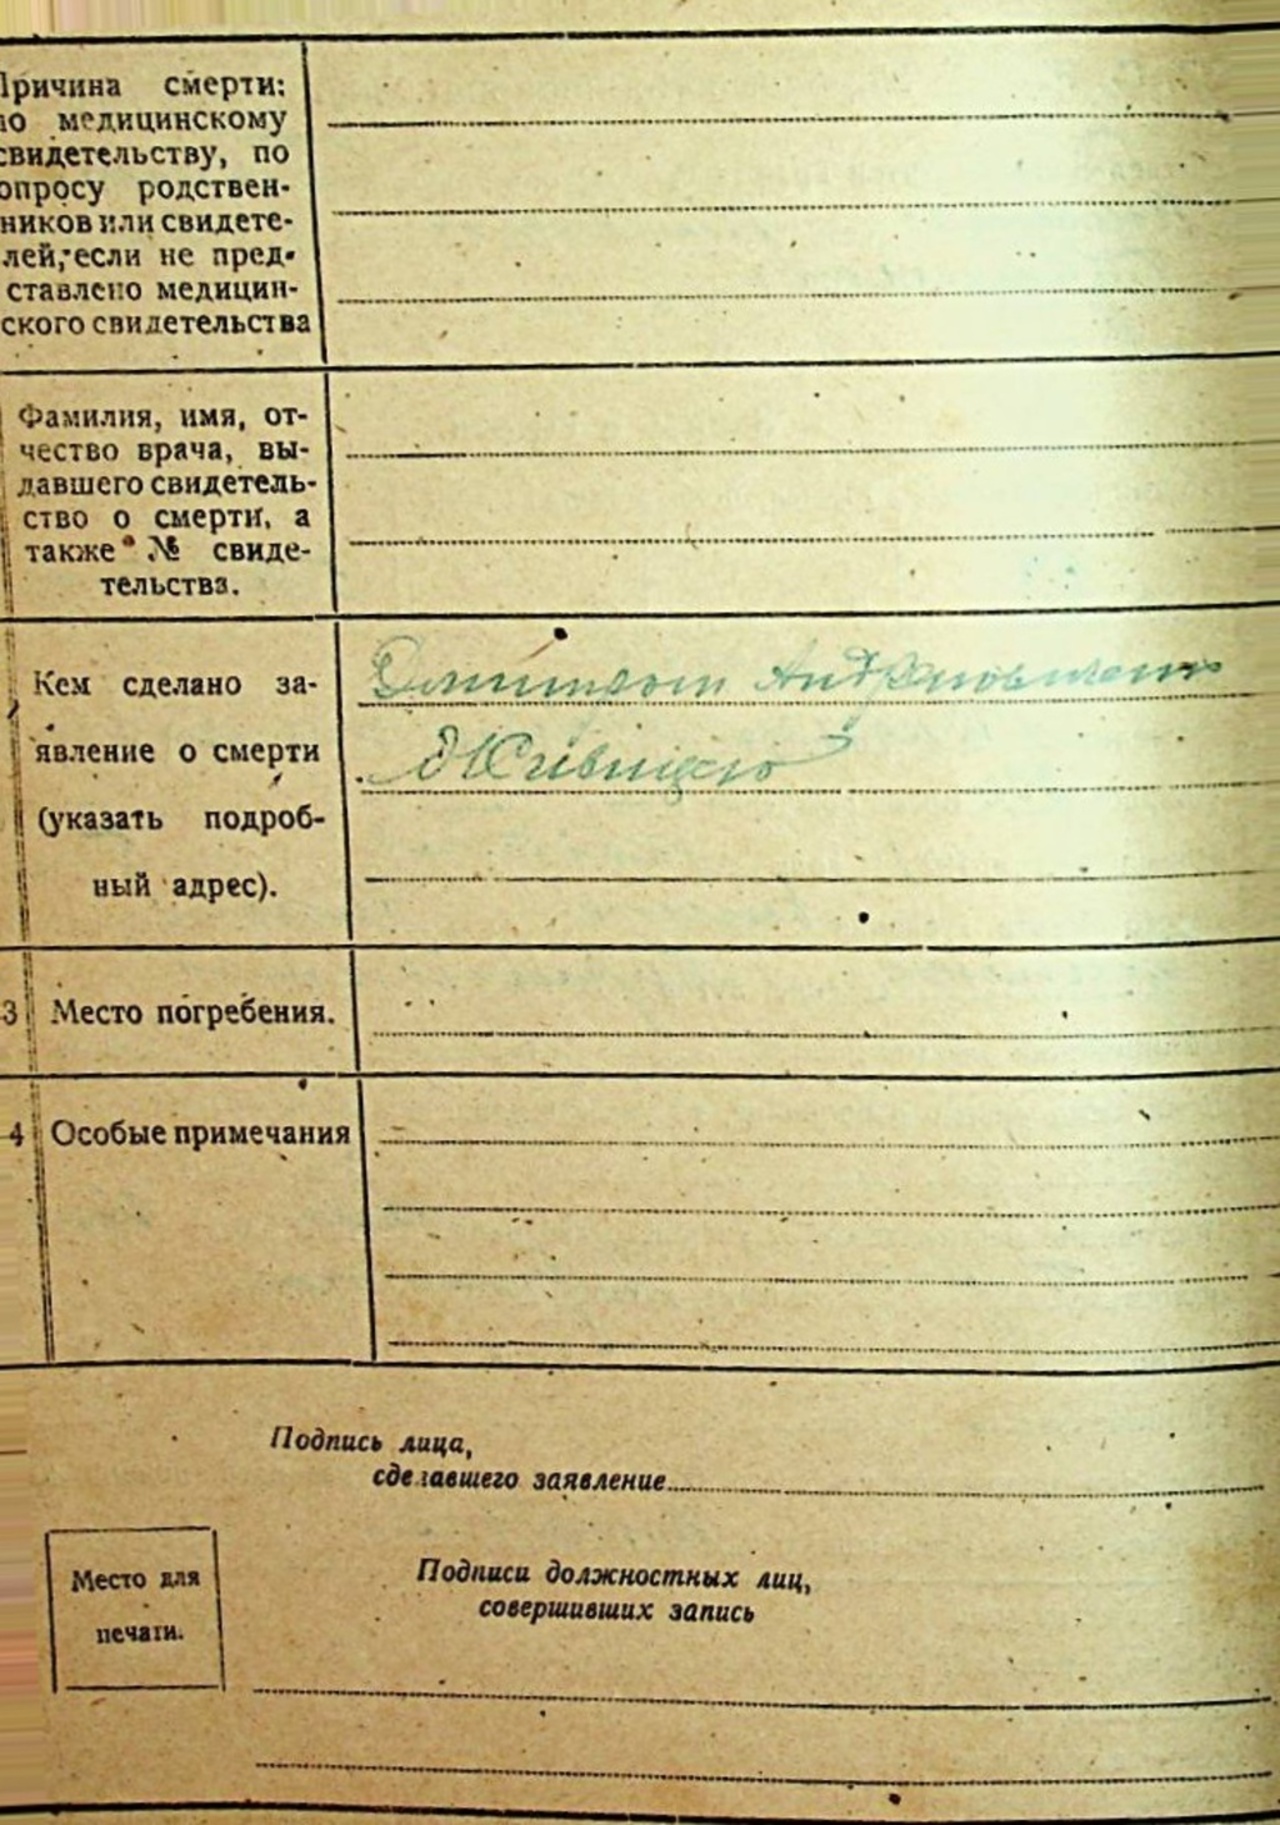 Причина смерти:
по медицинскому
свидетельству, по
опросу родствен-
ников или свидете-
лей, если не пред-
ставлено медицин-
ского свидетельства
Фамилия, имя, от-
чество врача, вы-
давшего свидетель-
ство о смерти, а
также № свиде-
тельства.
Кем сделано за-
явление о смерти
(указать подроб-
ный адрес).
3 Место погребения.
4 Особые примечания
Подпись лица,
сделавшего заявление
Место для
печати.
Подписи должностных лиц,
совершивших запись